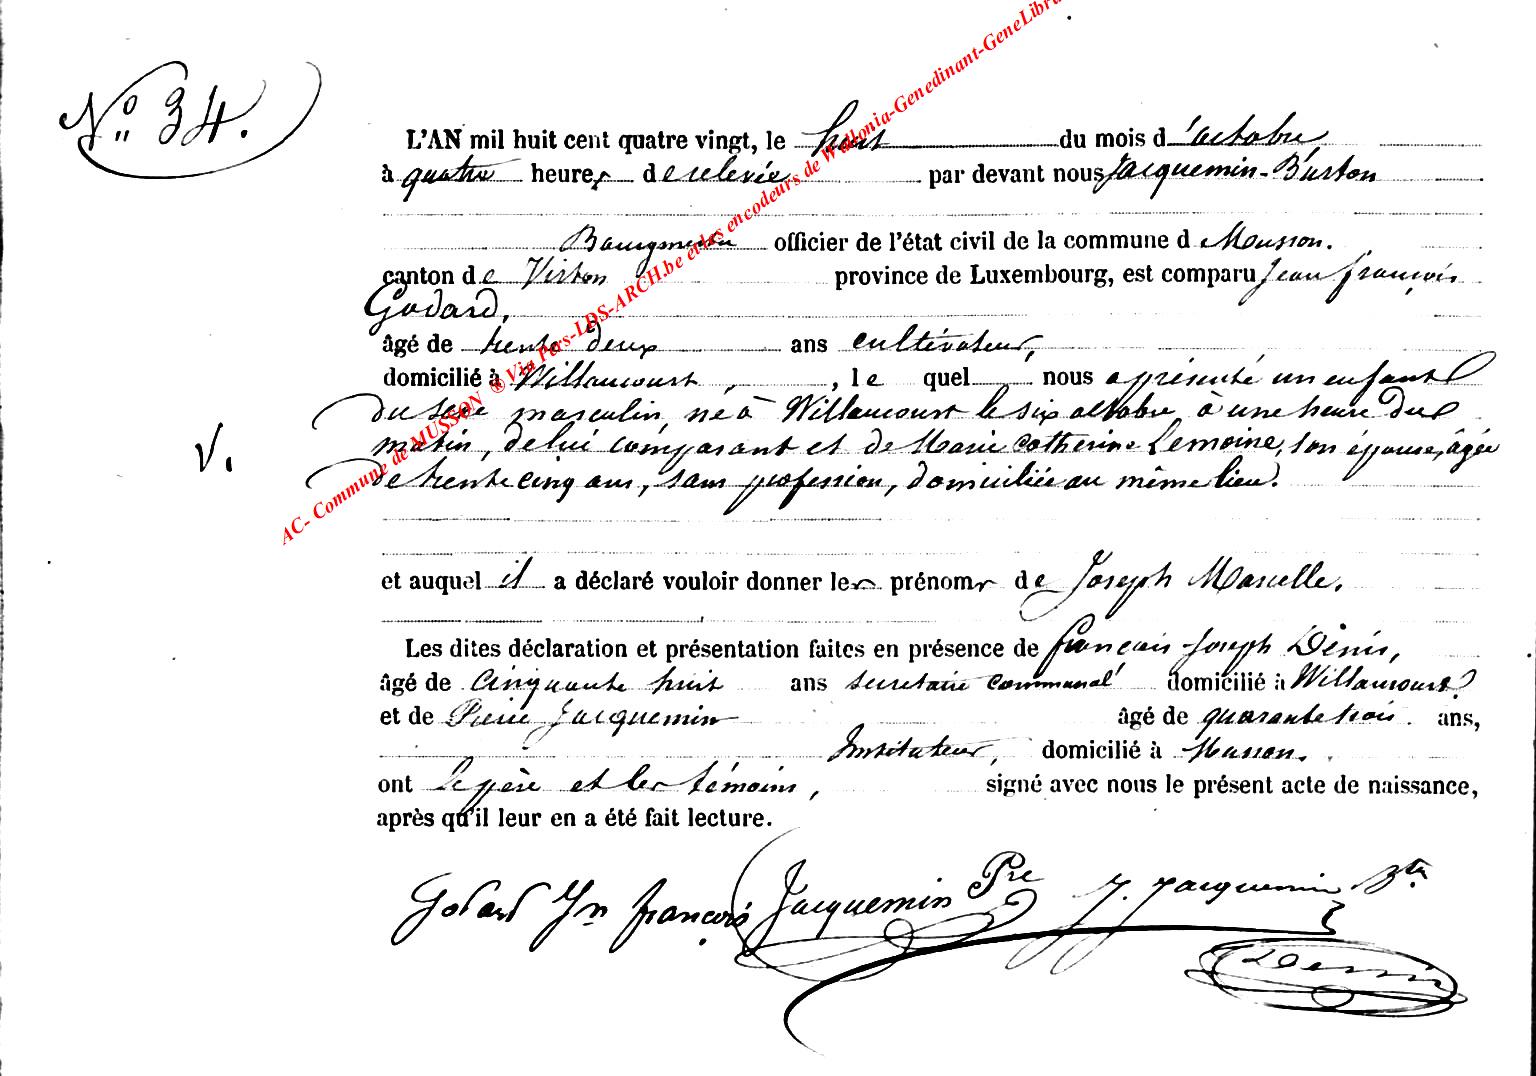 N° 34.
L'AN mil huit cent quatre vingt, le huit du mois d'octobre
à quatre heures de relevée par devant nous Jacquemin-Burton
Bourgmestre officier de l'état civil de la commune de Musson.
canton de Virton province de Luxembourg, est comparu Jean françois
Godard,
âgé de trente deux ans cultivateur,
domicilié à Willancourt, , le quel nous a présenté un enfant
du sexe masculin, né à Willancourt le six octobre, à une heure du
V. matin, de lui comparant et de Marie Catherine Lemoine, son épouse, âgée
de trente cinq ans, sans profession, domiciliée au même lieu.
et auquel il a déclaré vouloir donner les prénoms de Joseph Marcelle.
Les dites déclaration et présentation faites en présence de françois-Joseph Denis,
âgé de cinquante huit ans secrétaire communal domicilié à Willancourt
et de Pierre Jacquemin âgé de quarante trois ans,
Instituteur, domicilié à Musson.
ont le père et les témoins, signé avec nous le présent acte de naissance,
après qu'il leur en a été fait lecture.
Godard Jn françois Jacquemin Pre J. Jacquemin Bton
Denis
AC- Commune de MUSSON ® Via Pers-LDS-ARCH.be et les encodeurs de Wallonia-Genedinant-GeneLibra